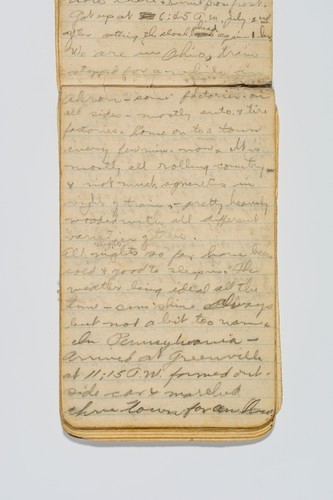 Got up at 6:45 A.M. July 2nd
after setting the clock ahead again 1 hr
We are in Ohio, train
stopped for a while in
Akron - some factories on
all sides - mostly auto & tire
factories - home or to a town
every few min. now. It is
mostly all rolling country
& not much in
sight of train - pretty heavily
wooded with all different
varieties of trees.
All nights so far have been
cold & good to sleep in. The
weather being ideal all the
time - sunshine always
but not a bit too warm.
In Pennsylvania -
Arrived at Greenville
at 11:15 A.M. formed out-
side car & marched
thru town for an hour